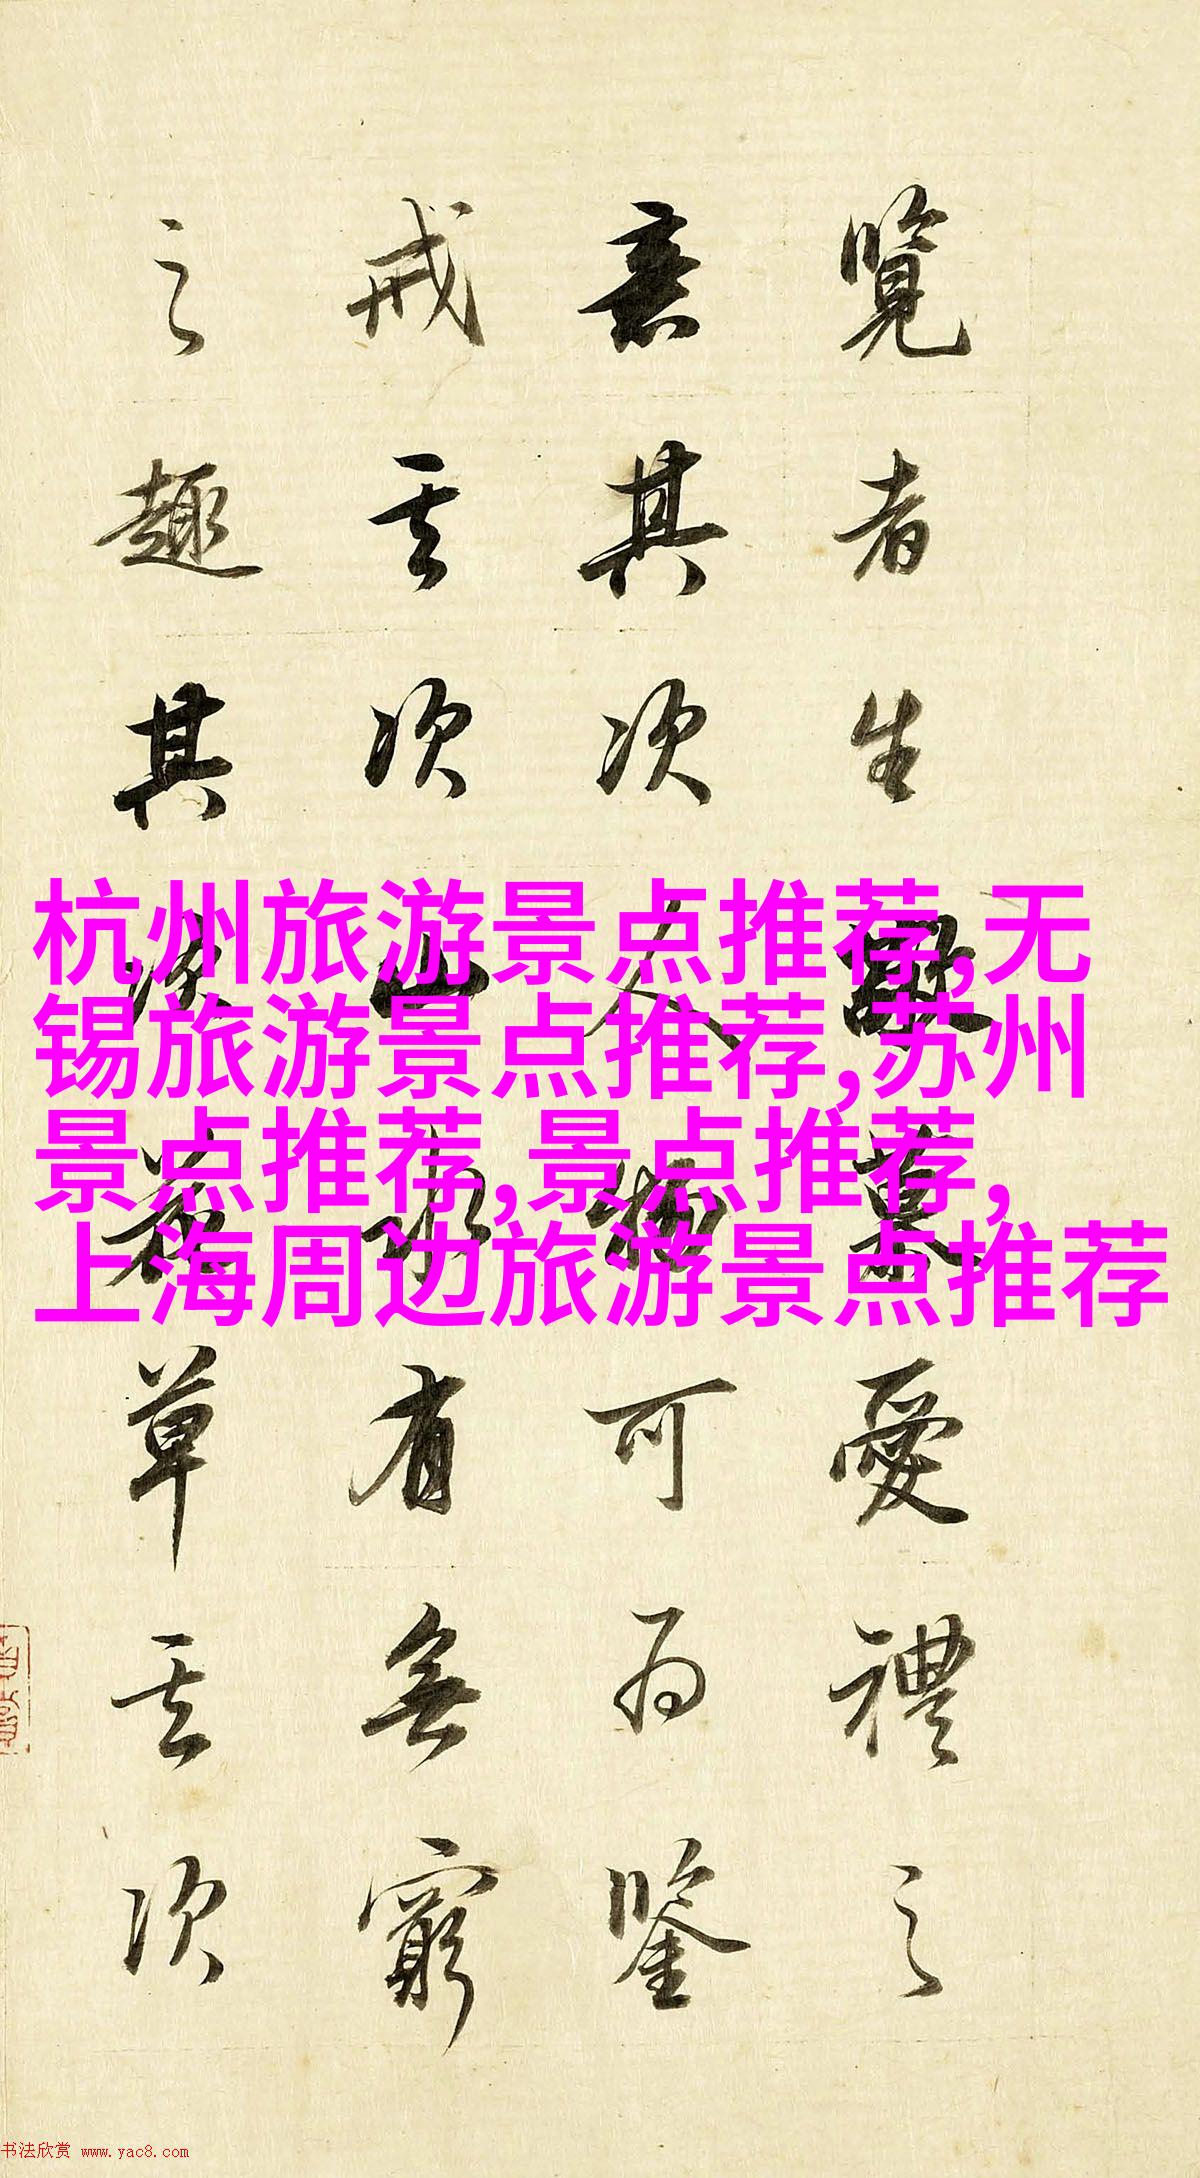 覽者生敬慕愛禮之
意其次人物可為鑒
戒其次山水有無窮
之趣其次花草其次
杭州旅游景点推荐,无
锡旅游景点推荐,苏州
景点推荐,景点推荐,
上海周边旅游景点推荐
书法欣赏 www.yac8.com